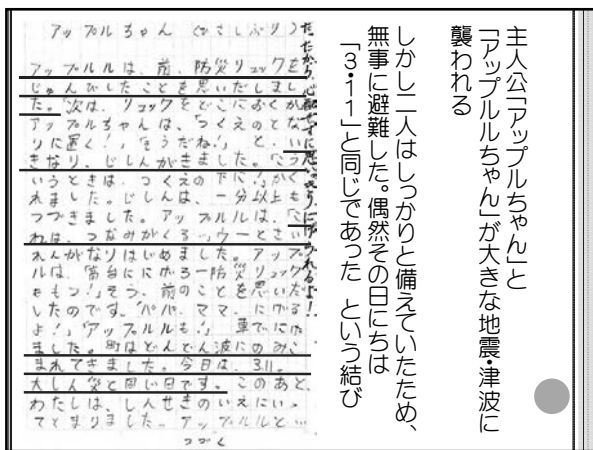 主人公「アップルちゃん」と
「アップルルちゃん」が大きな地震・津波に
襲われる
しかし二人はしっかりと備えていたため、
無事に避難した。偶然その日にちは
「3・11」と同じであった という結び
アップルちゃん (ひさしぶり)
アップルルは、前、防災リュックを
じゅんびしたことを思いだしまし
た。次は、リュックをどこにおくか
アップルちゃんは、「つくえのとな
りに置く!」「そうだね!」 と、い
きなり、じしんがきました。「こう
いうときは、つくえの下に!」かく
れました。じしんは、一分以上も
つづきました。アップルルは、「こ
れは、つなみがくるッウーとさい
れんがなりはじめました。アップ
ルは、「高台ににげろー防災リュック
をもつ!」そう、前のことを思いだ
したのです。「パパ、ママ、にげる
よ!」「アップルルも!」 車でにげ
ました。町はどんどん波にのみこ
まれてきました。今日は、3.11。
大しん災と同じ日です。このあと、
わたしは、しんせきのいえにいっ
てとまりました。アップルルと…
つづく